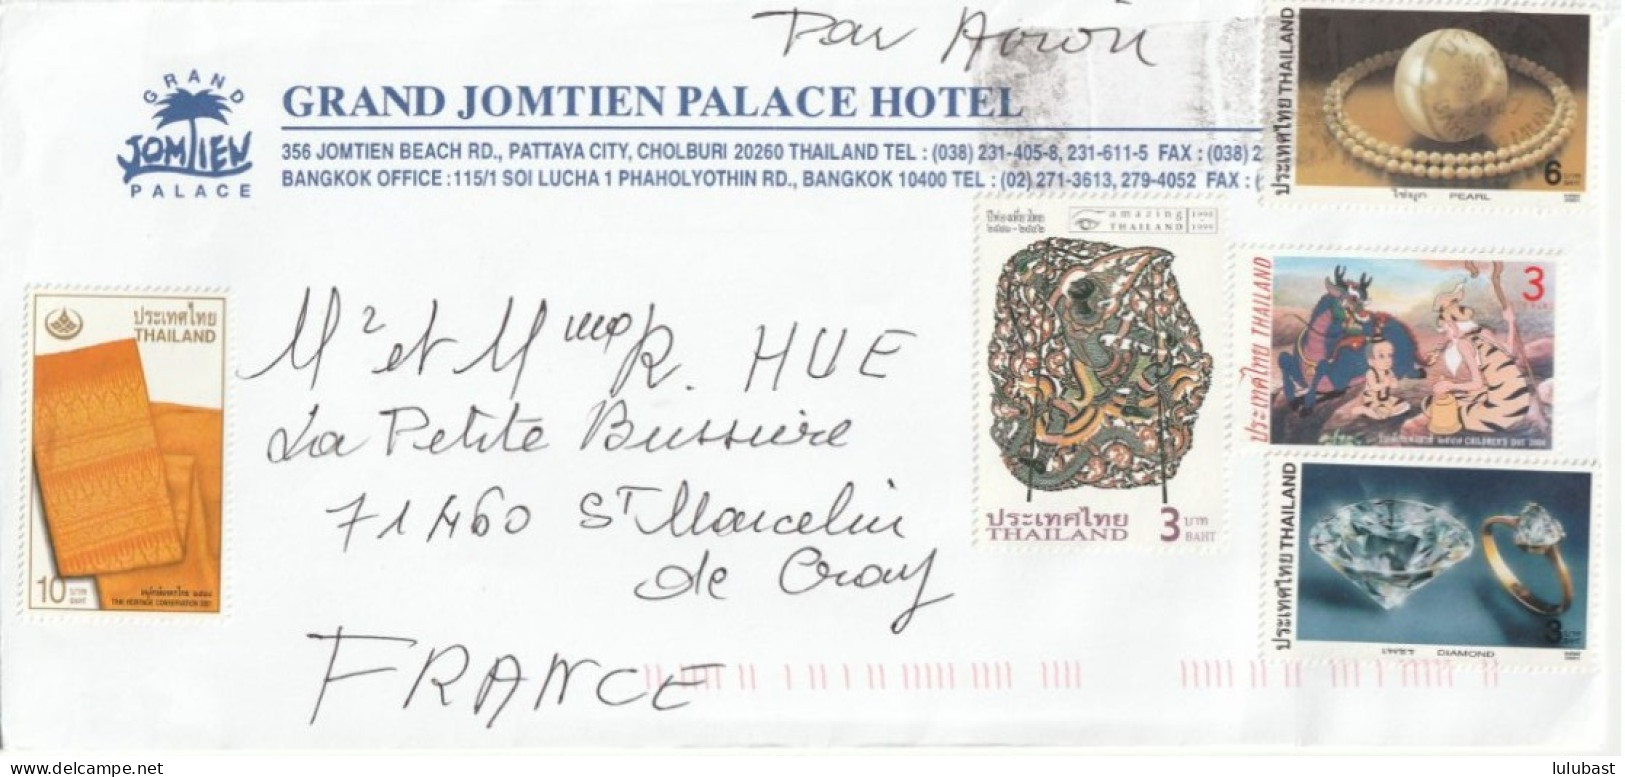 Par Avion
GRAND
JOMTIEN
PALACE
GRAND JOMTIEN PALACE HOTEL
356 JOMTIEN BEACH RD., PATTAYA CITY, CHOLBURI 20260 THAILAND TEL : (038) 231-405-8, 231-611-5 FAX : (038) 2
BANGKOK OFFICE : 115/1 SOI LUCHA 1 PHAHOLYOTHIN RD., BANGKOK 10400 TEL : (02) 271-3613, 279-4052 FAX : (
ประเทศไทย THAILAND
6 บาท BAHT
ไข่มุก PEARL
amazing
THAILAND
1998
1999
ประเทศไทย
THAILAND
3 บาท
BAHT
ประเทศไทย THAILAND
3
CHILDREN'S DAY
ประเทศไทย THAILAND
3 บาท
BAHT
เพชร DIAMOND
ประเทศไทย
THAILAND
10 บาท
BAHT
THAI HERITAGE CONSERVATION
Mr et Mme R. HUE
La Petite Bussière
71460 St Marcelin
de Cray
FRANCE
delcampe.net
lulubast